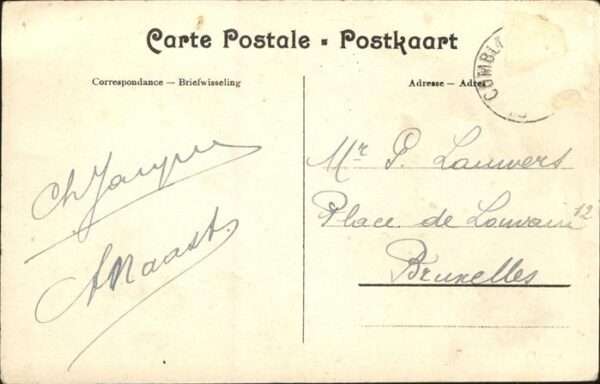 Carte Postale ▪ Postkaart
Correspondance — Briefwisseling
Adresse — Adre
COMBLA
Mr P. Lauwers
Place de Louvain 12
Bruxelles
A Naast.